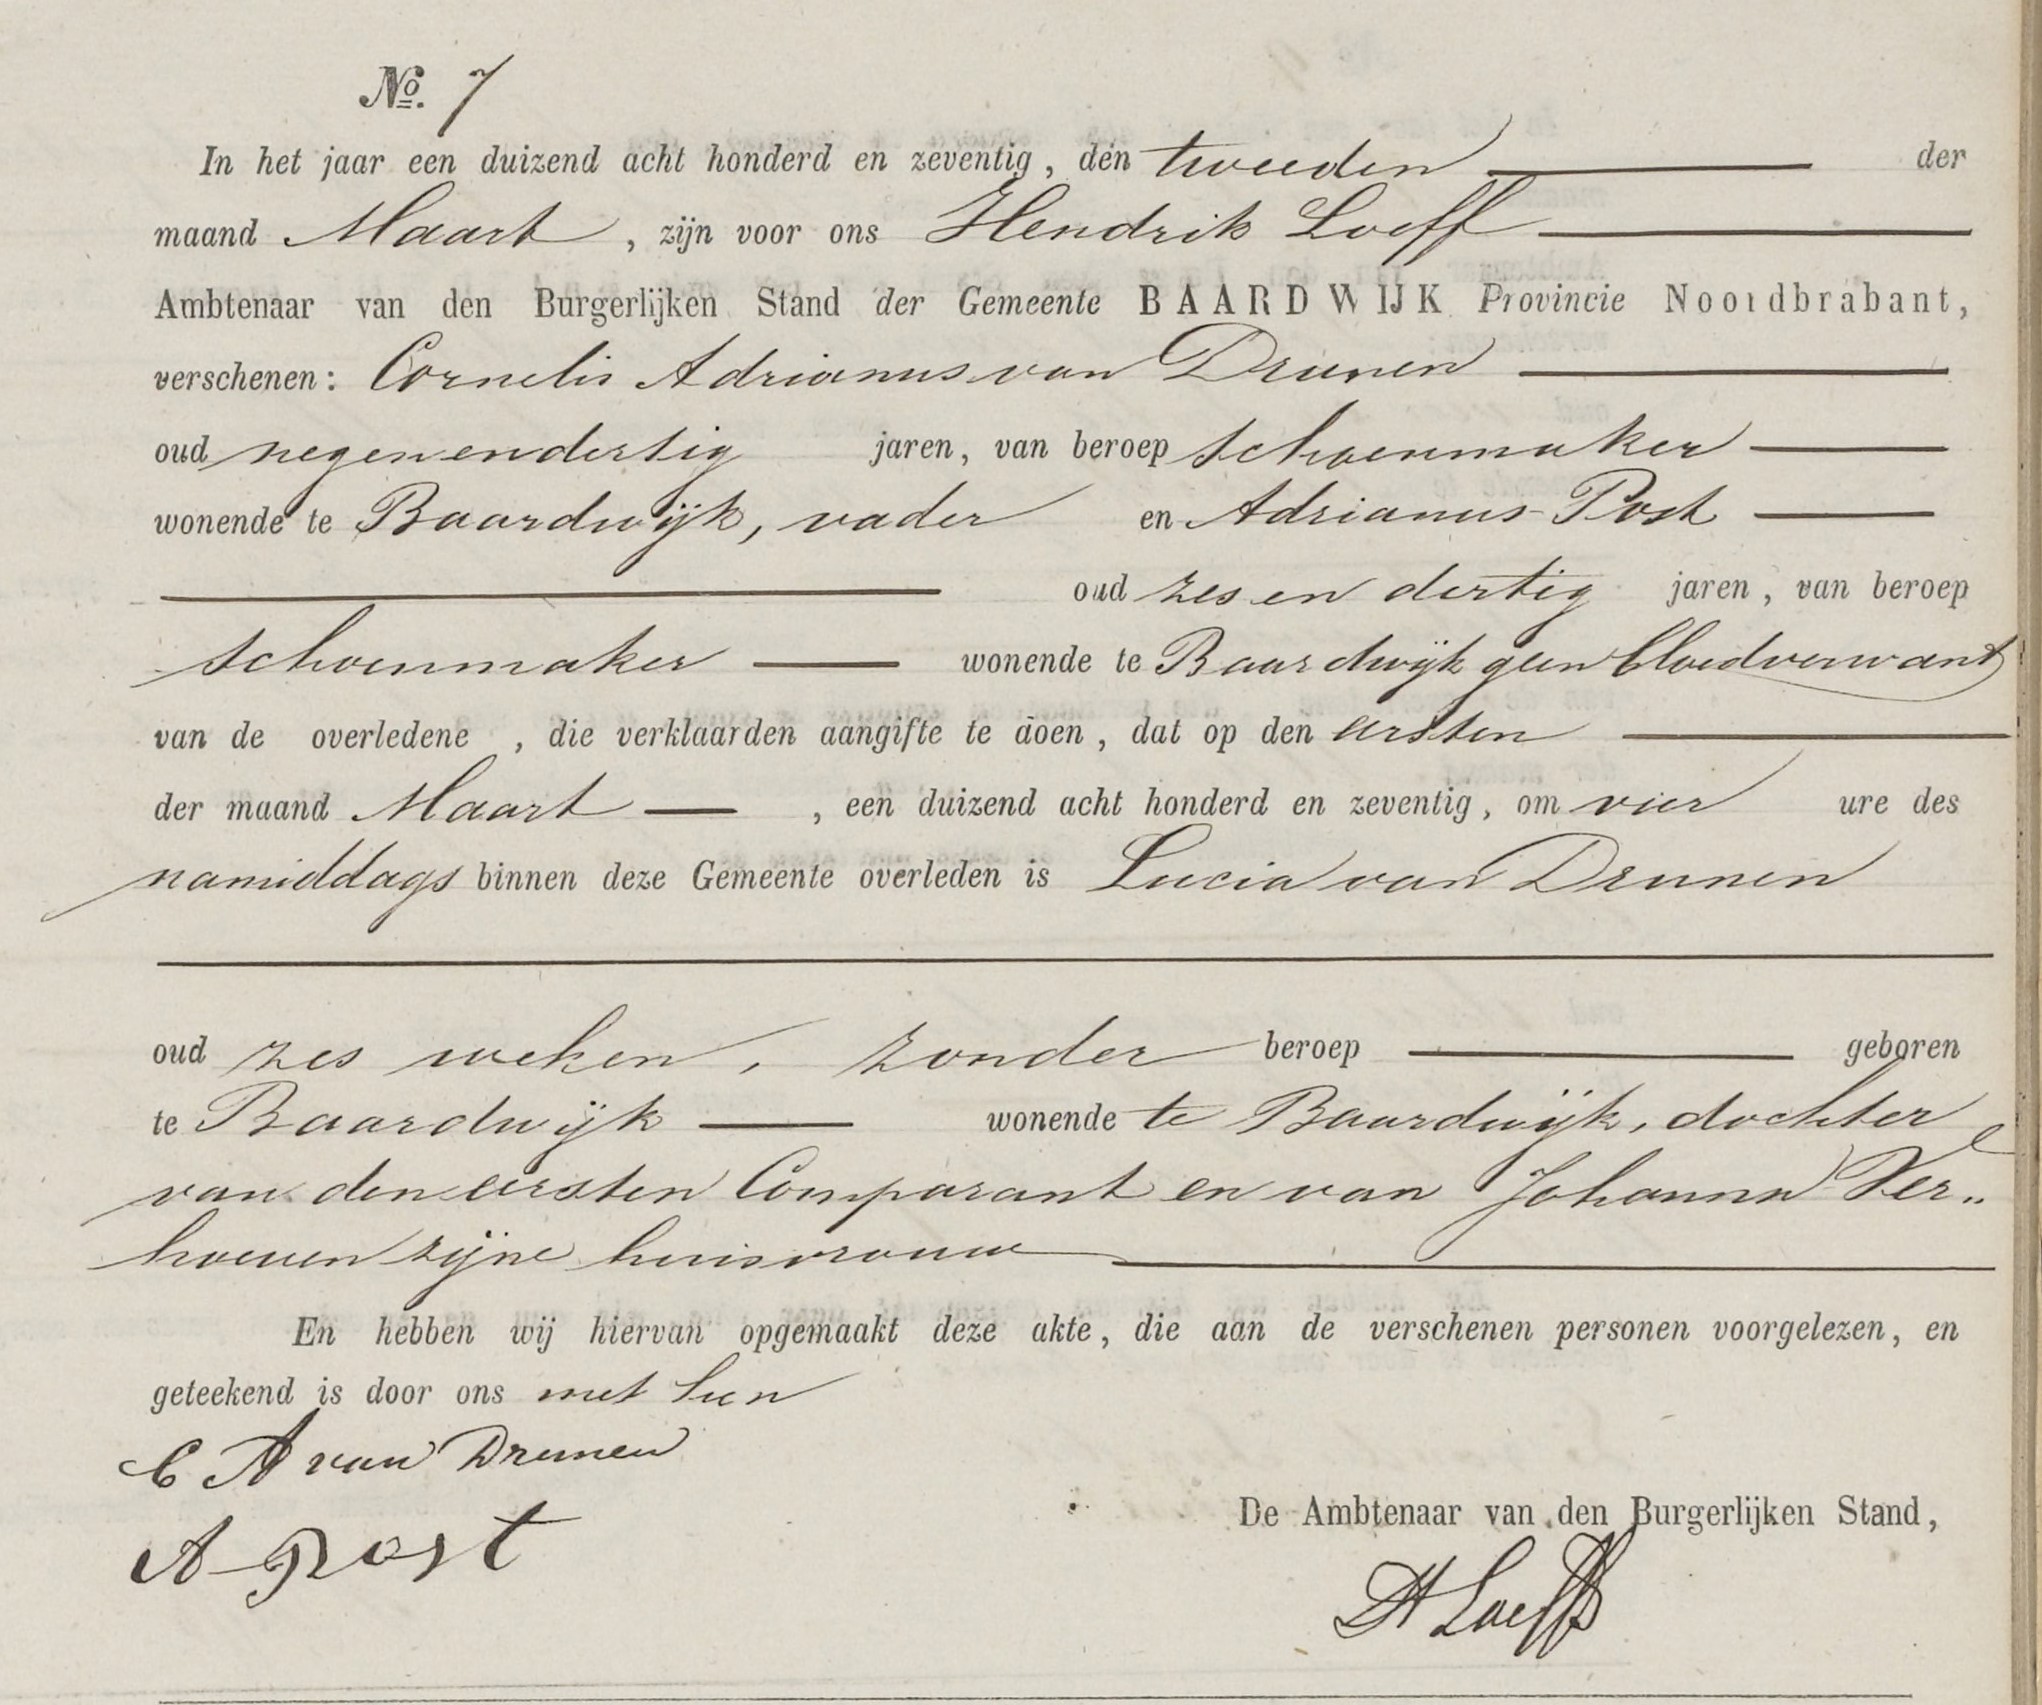 No. 7
In het jaar een duizend acht honderd en zeventig, den tweeden der
maand Maart, zijn voor ons Hendrik Loeff
Ambtenaar van den Burgerlijken Stand der Gemeente BAARDWIJK Provincie Noordbrabant,
verschenen: Cornelis Adrianus van Drunen
oud negenendertig jaren, van beroep schoenmaker
wonende te Baardwijk, vader en Adrianus Post
oud zes en dertig jaren, van beroep
schoenmaker wonende te Baardwijk geen bloedverwant
van de overledene, die verklaarden aangifte te doen, dat op den eersten
der maand Maart, een duizend acht honderd en zeventig, om vier ure des
namiddags binnen deze Gemeente overleden is Lucia van Drunen
oud zes weken, zonder beroep geboren
te Baardwijk wonende te Baardwijk, dochter
van den eersten Comparant en van Johanna Ver„
hoeven zijne huisvrouw
En hebben wij hiervan opgemaakt deze akte, die aan de verschenen personen voorgelezen, en
geteekend is door ons met hun
C A van Drunen
A Post
De Ambtenaar van den Burgerlijken Stand,
H Loeff